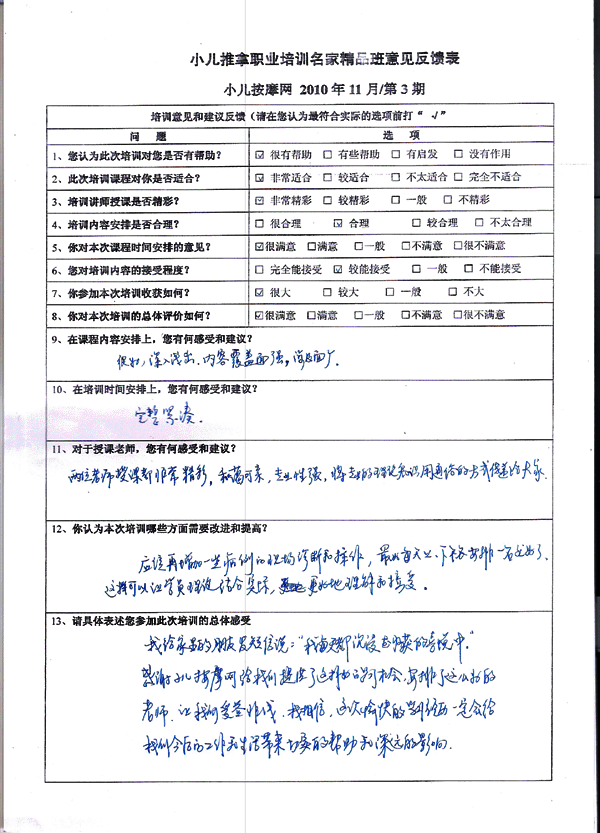 小儿推拿职业培训名家精品班意见反馈表
小儿按摩网 2010年11月/第3期
培训意见和建议反馈（请在您认为最符合实际的选项前打“ √”
问 题 选 项
1、您认为此次培训对您是否有帮助？ ☑ 很有帮助 □ 有些帮助 □ 有启发 □ 没有作用
2、此次培训课程对你是否适合？ ☑ 非常适合 □ 较适合 □ 不太适合 □ 完全不适合
3、培训讲师授课是否精彩？ ☑ 非常精彩 □ 较精彩 □ 一般 □ 不精彩
4、培训内容安排是否合理？ □ 很合理 ☑ 合理 □ 较合理 □ 不太合理
5、你对本次课程时间安排的意见？ ☑很满意 □满意 □一般 □不满意 □很不满意
6、您对培训内容的接受程度？ □ 完全能接受 ☑ 较能接受 □ 一般 □ 不能接受
7、你参加本次培训收获如何？ ☑ 很大 □ 较大 □ 一般 □ 不大
8、你对本次培训的总体评价如何？ ☑很满意 □满意 □一般 □不满意 □很不满意
9、在课程内容安排上，您有何感受和建议？
很好，深入浅出、内容覆盖面强，涉及面广。
10、在培训时间安排上，您有何感受和建议？
完整紧凑.
11、对于授课老师，您有何感受和建议？
两位老师授课都非常精彩，和蔼可亲，专业性强，将专业的理论知识用通俗的方式传递给大家.
12、你认为本次培训哪些方面需要改进和提高？
应该再增加一些病例的现场诊断和操作，最好每天上、下午各安排一名患儿了.
这样可以让学员理论结合实际，更好地理解和接受。
13、请具体表述您参加此次培训的总体感受
我给家里的朋友发短信说：“我每天都沉浸在收获的喜悦中。”
感谢小儿按摩网给我们提供了这样好的学习机会，安排了这么好的
老师，让我们受益非浅，我相信，这次愉快的学习经历一定会给
我们今后的工作和生活带来切实的帮助和深远的影响.